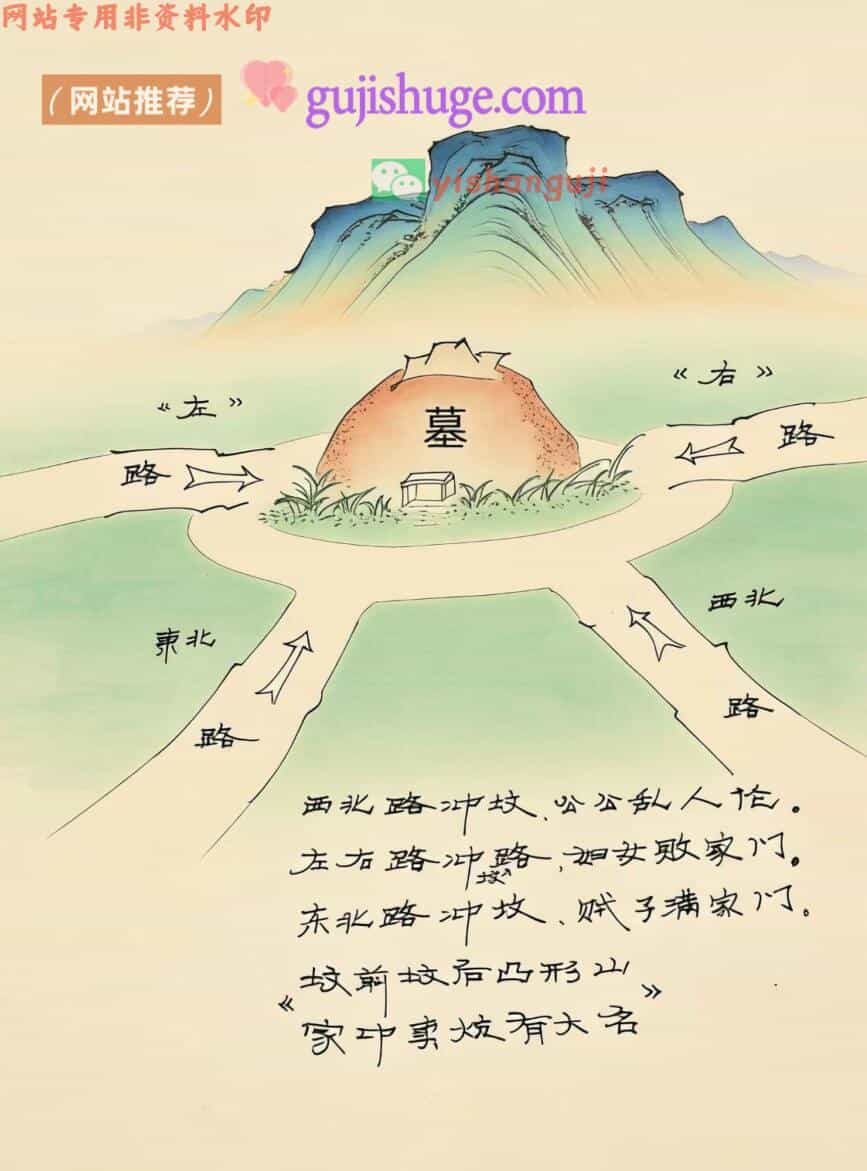 网站专用非资料水印
（网站推荐）
gujishuge.com
yishanguji
墓
《左》
《右》
路
路
东北
西北
路
路
西北路冲坟、公公乱人伦。
左右路冲路，妇女败家门。
坟
东北路冲坟、贼子满家门。
《坟前坟后凸形山
家中事 有大名》